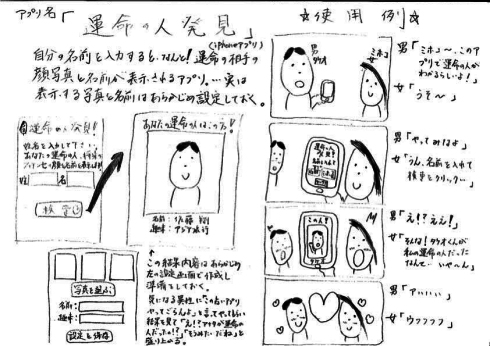 アプリ名「運命の人発見」
(iphoneアプリ)
自分の名前を入力すると、なんと!運命の相手の
顔写真と名前が表示されるアプリ。…実は
表示する写真と名前はあらかじめ設定しておく。
運命の人発見!
姓名を入力して下さい。
あなたの運命の人
姓 名
検索
あなたの運命の人はこの方!
名前:佐藤
趣味:アジア旅行
写真を選ぶ
名前:
趣味:
設定を保存
↑
この結果内容はあらかじめ
左の設定画面で作成し
準備しておく。
気になる異性に「この占いアプリ
やってごらんよ」と言ってやってもらい
結果を見て「え!?アナタが運命の
人だったの!?」「もうみたいだね」と
盛り上がる。
☆使用例☆
男
タケオ
ミホコ
女
男「ミホコ〜、このア
プリで運命の人が
わかるらしいよ!」
女「うそ〜」
運命の人
発見!
男「やってみなよ」
女「うん、名前を入れて
検索とクリック…」
この人!
タケオ
男「え!?ええ!」
女「そんな!タケオくんが
私の運命の人だった
なんて…いや〜ん」
男「アハハハ」
女「ウフフフフ」